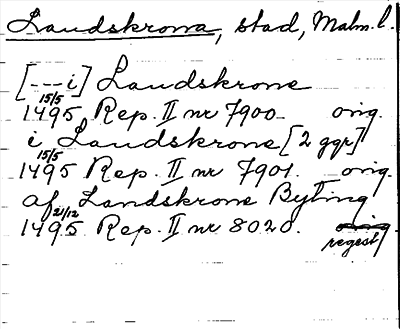 Landskrona, stad, Malm. l.
[---i] Landskrone
15/5
1495 Rep. II nr 7900. orig.
i Landskrone [2 ggr]
15/5
1495 Rep. II nr 7901. orig.
af Landskrone Byting
21/12
1495 Rep. II nr 8020. orig.
regest